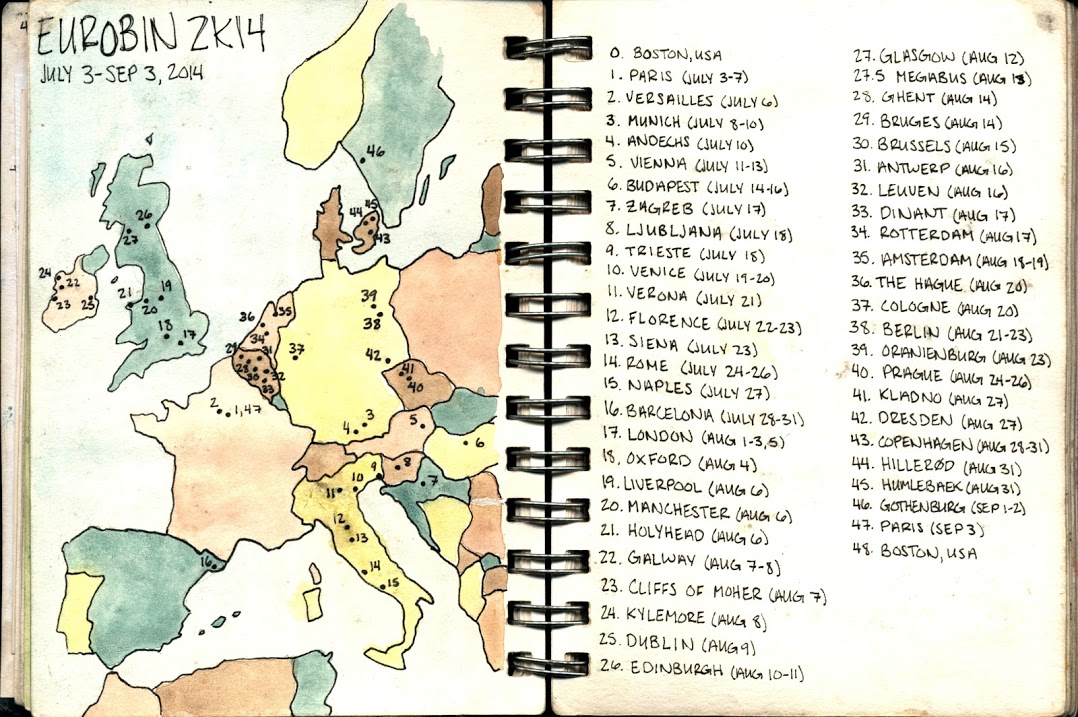 EUROBIN 2K14
JULY 3-SEP 3, 2014
46
45
44
43
26
27
24
22
23
25
21
19
20
18
17
36
35
34
39
38
29
31
28
30
32
33
37
42
41
40
2
1,47
3
4
5
6
9
8
7
10
11
12
13
16
14
15
0. BOSTON, USA
1. PARIS (JULY 3-7)
2. VERSAILLES (JULY 6)
3. MUNICH (JULY 8-10)
4. ANDECHS (JULY 10)
5. VIENNA (JULY 11-13)
6. BUDAPEST (JULY 14-16)
7. ZAGREB (JULY 17)
8. LJUBLJANA (JULY 18)
9. TRIESTE (JULY 18)
10. VENICE (JULY 19-20)
11. VERONA (JULY 21)
12. FLORENCE (JULY 22-23)
13. SIENA (JULY 23)
14. ROME (JULY 24-26)
15. NAPLES (JULY 27)
16. BARCELONA (JULY 28-31)
17. LONDON (AUG 1-3,5)
18. OXFORD (AUG 4)
19. LIVERPOOL (AUG 6)
20. MANCHESTER (AUG 6)
21. HOLYHEAD (AUG 6)
22. GALWAY (AUG 7-8)
23. CLIFFS OF MOHER (AUG 7)
24. KYLEMORE (AUG 8)
25. DUBLIN (AUG 9)
26. EDINBURGH (AUG 10-11)
27. GLASGOW (AUG 12)
27.5 MEGABUS (AUG 13)
28. GHENT (AUG 14)
29. BRUGES (AUG 14)
30. BRUSSELS (AUG 15)
31. ANTWERP (AUG 16)
32. LEUVEN (AUG 16)
33. DINANT (AUG 17)
34. ROTTERDAM (AUG 17)
35. AMSTERDAM (AUG 18-19)
36. THE HAGUE (AUG 20)
37. COLOGNE (AUG 20)
38. BERLIN (AUG 21-23)
39. ORANIENBURG (AUG 23)
40. PRAGUE (AUG 24-26)
41. KLADNO (AUG 27)
42. DRESDEN (AUG 27)
43. COPENHAGEN (AUG 28-31)
44. HILLERØD (AUG 31)
45. HUMLEBAEK (AUG 31)
46. GOTHENBURG (SEP 1-2)
47. PARIS (SEP 3)
48. BOSTON, USA